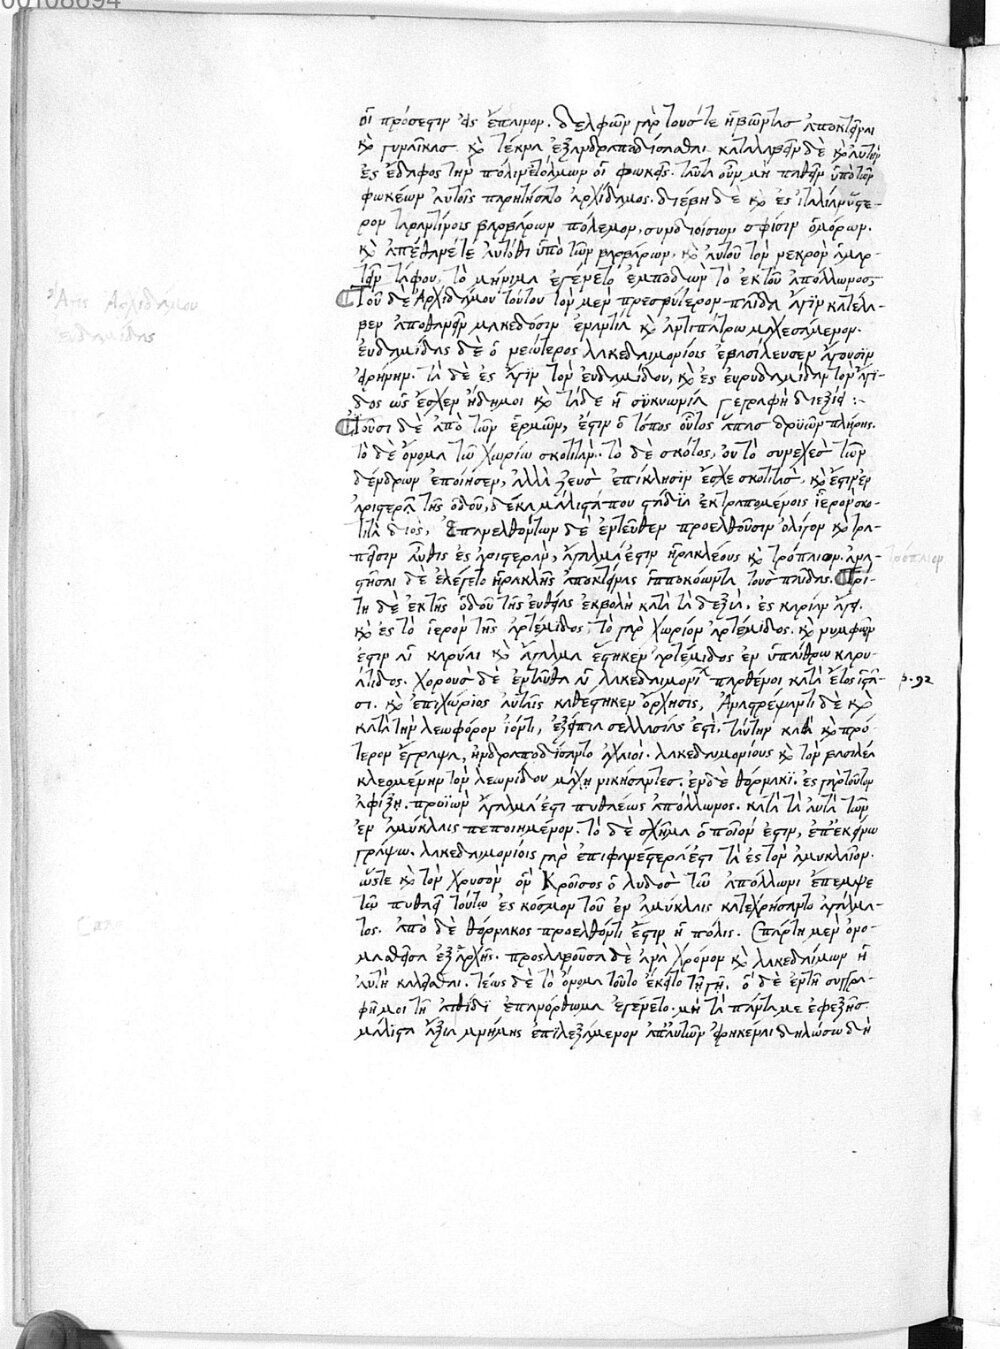 00108694
οἳ πρόσεστιν ἐς ἔπαινον. δελφῶν γὰρ τούς τε ἡβῶντας ἀποκτεῖναι
καὶ γυναῖκας καὶ τέκνα ἐξανδραποδίσασθαι καταλαβεῖν δὲ καὶ αὐτὴν
ἐς ἔδαφος τὴν πόλιν ἐτόλμων οἱ φωκεῖς. ταῦτα οὖν μὴ παθεῖν ὑπὸ τῶν
φωκέων αὐτοῖς παρῃτήσατο ἀρχίδαμος. διέβη δὲ καὶ ἐς ἰταλίαν ὕστε-
ρον ταραντίνοις βαρβάρων πόλεμον, συνδιοίσων σφίσιν ὁμόρων.
καὶ ἀπέθανέ τε αὐτόθι ὑπὸ τῶν βαρβάρων, καὶ αὐτοῦ τὸν νεκρὸν ἁμαρ-
τεῖν τάφου, τὸ μήνιμα ἐγένετο ἐμποδὼν τὸ ἐκ τοῦ ἀπόλλωνος
Τοῦ δὲ ἀρχιδάμου τούτου τὸν μὲν πρεσβύτερον παῖδα ἆγιν κατέλα-
Ἆγις Ἀρχιδάμου
βεν ἀποθανεῖν μακεδόσιν ἐναντία καὶ ἀντιπάτρῳ μαχεσάμενον.
εὐδαμίδας
εὐδαμίδας δὲ ὁ νεώτερος λακεδαιμονίοις ἐβασίλευσεν ἄγουσιν
εἰρήνην. τὰ δὲ ἐς ἆγιν τὸν εὐδαμίδου, καὶ ἐς εὐρυδαμίδαν τὸν ἄγι-
δος ὡς ἔσχεν ἤδη μοι καὶ τάδε ἡ σικυωνία γεγραφὴ διέξει :-
Ἰοῦσι δὲ ἀπὸ τῶν ἑρμῶν, ἔστιν ὁ τόπος οὗτος ἅπας δρυῶν πλήρης.
τὸ δὲ ὄνομα τῶ χωρίω σκοτίταν. τὸ δὲ σκότος, οὐ τὸ συνεχὲς τῶν
δένδρων ἐποίησεν, ἀλλὰ ζεὺς ἐπίκλησιν ἔσχε σκοτίτας, καὶ ἔστιν ἐν
ἀριστερᾷ τῆς ὁδοῦ, δέκα μάλιστά που στάδια ἐκτραπομένοις ἱερὸν σκο-
τίτα διὸς, Ἐπανελθόντων δὲ ἐντεῦθεν προελθοῦσιν ὀλίγον καὶ τρα-
πεῖσιν αὖθις ἐς ἀριστερὰν, ἄγαλμά ἐστιν ἡρακλέους καὶ τρόπαιον. ἀνα-
τρόπαιον
στῆσαι δὲ ἐλέγετο ἡρακλῆς ἀποκτείνας ἱπποκόωντα τοὺς παῖδας. Τρί-
τη δὲ ἐκ τῆς ὁδοῦ τῆς εὐθείας ἐκβολὴ κατὰ τὰ δεξιὰ, ἐς καρύαν ἄγει.
καὶ ἐς τὸ ἱερὸν τῆς ἀρτέμιδος. τὸ γὰρ χωρίον ἀρτέμιδος. καὶ νυμφῶν
ἐστιν αἱ καρύαι καὶ ἄγαλμα ἕστηκεν ἀρτέμιδος ἐν ὑπαίθρω καρυ-
άτιδος. χοροὺς δὲ ἐνταῦθα αἱ λακεδαιμονίων παρθένοι κατὰ ἔτος ἱστᾶ-
p. 92
σι. καὶ ἐπιχώριος αὐταῖς καθέστηκεν ὄρχησις, Ἀναστρέψαντι δὲ καὶ
κατὰ τὴν λεωφόρον ἰόντι, ἐρείπια σελλασίας ἐστὶ, ταύτην καθὰ καὶ πρό-
τερον ἔγραψα, ἠνδραποδίσαντο ἀχαιοὶ. λακεδαιμονίους καὶ τὸν βασιλέα
κλεομένην τὸν λεωνίδου μάχῃ νικήσαντες. ἐν δὲ θόρνακι. ἐς γὰρ τοῦτον
ἀφίξῃ. προϊὼν ἄγαλμά ἐστι πυθαέως ἀπόλλωνος. κατὰ τὰ αὐτὰ τῶν
ἐν ἀμύκλαις πεποιημένον. τὸ δὲ σχῆμα ὁποῖόν ἐστιν, ἐπ' ἐκείνω
γράψω. λακεδαιμονίοις γὰρ ἐπιφανέστερά ἐστι τὰ ἐς τὸν ἀμυκλαῖον.
ὥστε καὶ τὸν χρυσὸν ὃν Κροῖσος ὁ λυδὸς τῶ ἀπόλλωνι ἔπεμψε
τῶ πυθαεῖ τούτω ἐς κόσμον τοῦ ἐν ἀμύκλαις κατεχρήσαντο ἀγάλμα-
τος. ἀπὸ δὲ θόρνακος προελθόντι ἔστιν ἡ πόλις. Σπάρτη μὲν ὀνο-
μασθεῖσα ἐξ ἀρχῆς. προσλαβοῦσα δὲ ἀνὰ χρόνον καὶ λακεδαίμων ἡ
αὐτὴ καλεῖσθαι. τέως δὲ τὸ ὄνομα τοῦτο ἔκειτο τῇ γῇ. ὃ δὲ ἐν τῇ συγγρα-
φῇ μοι τῇ ἀτθίδι ἐπανόρθωμα ἐγένετο. μὴ τὰ πάντα με ἐφεξῆς
μάλιστα ἄξια μνήμης ἐπιλεξάμενον ἀπ' αὐτῶν εἰρηκέναι δηλώσω δὴ